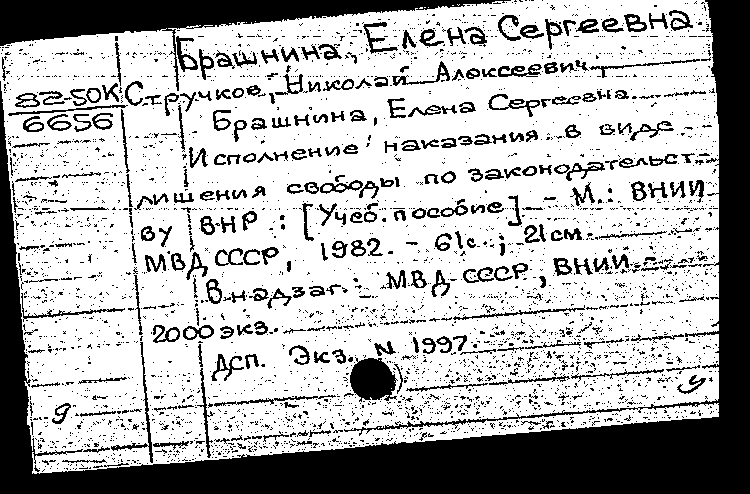 Брашнина, Елена Сергеевна.
82-50К
6656
Стручков, Николай Алексеевич.,
Брашнина, Елена Сергеевна.
Исполнение наказания в виде
лишения свободы по законодательст-
ву ВНР : [Учеб. пособие] - М.: ВНИИ
МВД СССР, 1982. - 61с.; 21см.
В надзаг.: МВД СССР, ВНИИ. -
2000 экз.
ДСП. Экз. N 1997.
д
у